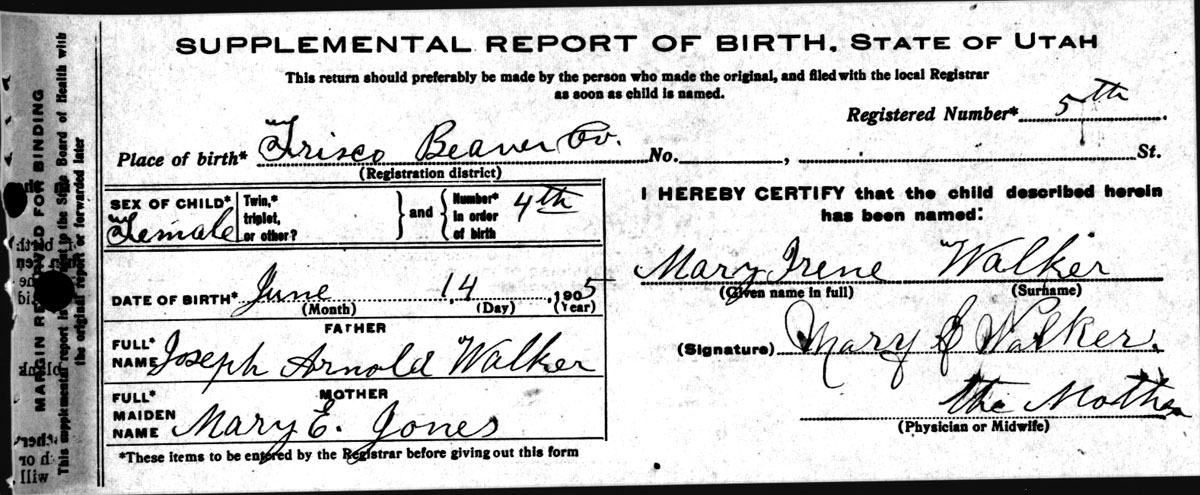 SUPPLEMENTAL REPORT OF BIRTH. STATE OF UTAH
This return should preferably be made by the person who made the original, and filed with the local Registrar
as soon as child is named.
Registered Number* 5th
Place of birth* Frisco Beaver Co. No. , St.
(Registration district)
SEX OF CHILD* Female
Twin,* triplet, or other?
and
Number* in order of birth 4th
DATE OF BIRTH* June 14, 1905
(Month) (Day) (Year)
FATHER
FULL* NAME Joseph Arnold Walker
MOTHER
FULL* MAIDEN NAME Mary E. Jones
*These items to be entered by the Registrar before giving out this form
I HEREBY CERTIFY that the child described herein
has been named:
Mary Irene Walker
(Given name in full) (Surname)
(Signature) Mary E Walker.
the Mother
(Physician or Midwife)
MARGIN RESERVED FOR BINDING
This supplemental report is to the State Board of Health with
the original report or forwarded later